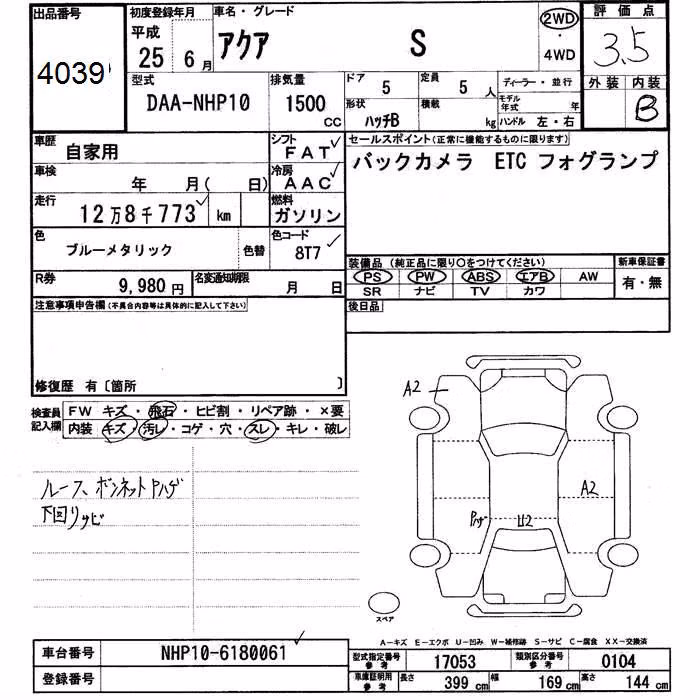 出品番号 初度登録年月 車名・グレード 2WD 評価点
4039 平成 25 6月 アクア S ・ 4WD 3.5
型式 排気量 ドア 5 定員 5人 ディーラー・並行 外装 内装
DAA-NHP10 1500 CC 形状 ハッチB 積載 kg モデル年式 年 B
ハンドル 左・右
車歴 自家用 シフト FAT セールスポイント(正常に機能するものに限ります)
車検 年 月( 日) 冷房 AAC バックカメラ ETC フォグランプ
走行 12万8千773 km 燃料 ガソリン
色 ブルーメタリック 色替 色コード 8T7
装備品(純正品に限り○をつけてください) 新車保証書
R券 9,980円 名変通知期限 月 日 PS PW ABS エアB AW 有・無
SR ナビ TV カワ
注意事項申告欄(不具合内容等は具体的に記入して下さい) 後日品
修復歴 有〔箇所 〕
検査員記入欄 FW キズ・飛石・ヒビ割・リペア跡・×要
内装 キズ・汚レ・コゲ・穴・スレ・キレ・破レ
A2
ルーフ、ボンネットPハゲ A2
下回りサビ Pハゲ U2
スペア
A-キズ E-エクボ U-凹み W-補修跡 S-サビ C-腐食 XX-交換済
車台番号 NHP10-6180061 型式指定番号 参考 17053 類別区分番号 参考 0104
登録番号 車庫証明用 参考 長さ 399 cm 幅 169 cm 高さ 144 cm